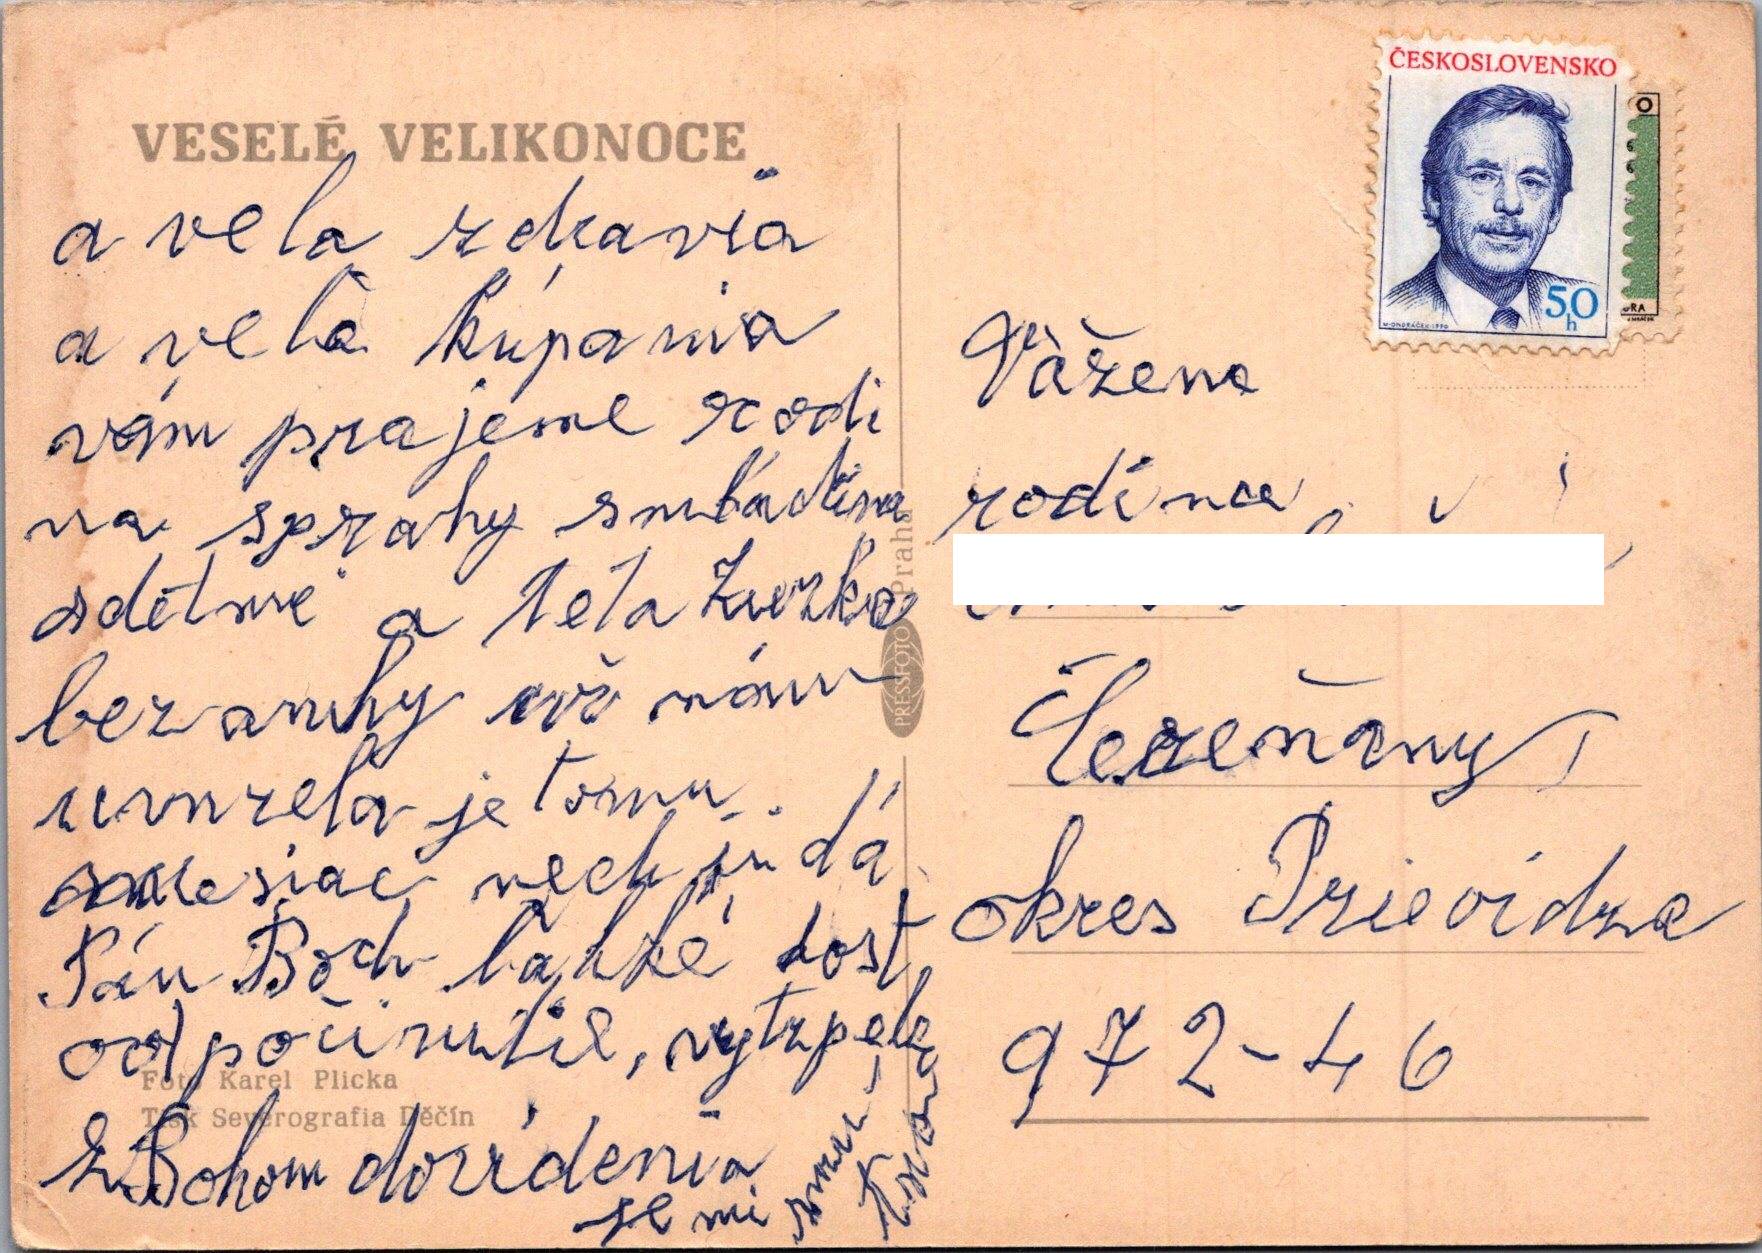 VESELÉ VELIKONOCE
a vela zdravia
a vela kúpania
vám prajeme rodi
na sprahy
a teta Zuzka
bez nohy už nám
umrela je tomu
mesiac nech jú dá
Pán Boch lahké
odpočinutie, vytrpela
z Bohom dovidenia
je mi
Foto Karel Plicka
Tisk Severografia Děčín
PRESSFOTO Praha
ČESKOSLOVENSKO
50 h
M·ONDRÁČEK·1990
Vážena
rodina
Čereňany
okres Prievidza
972-46